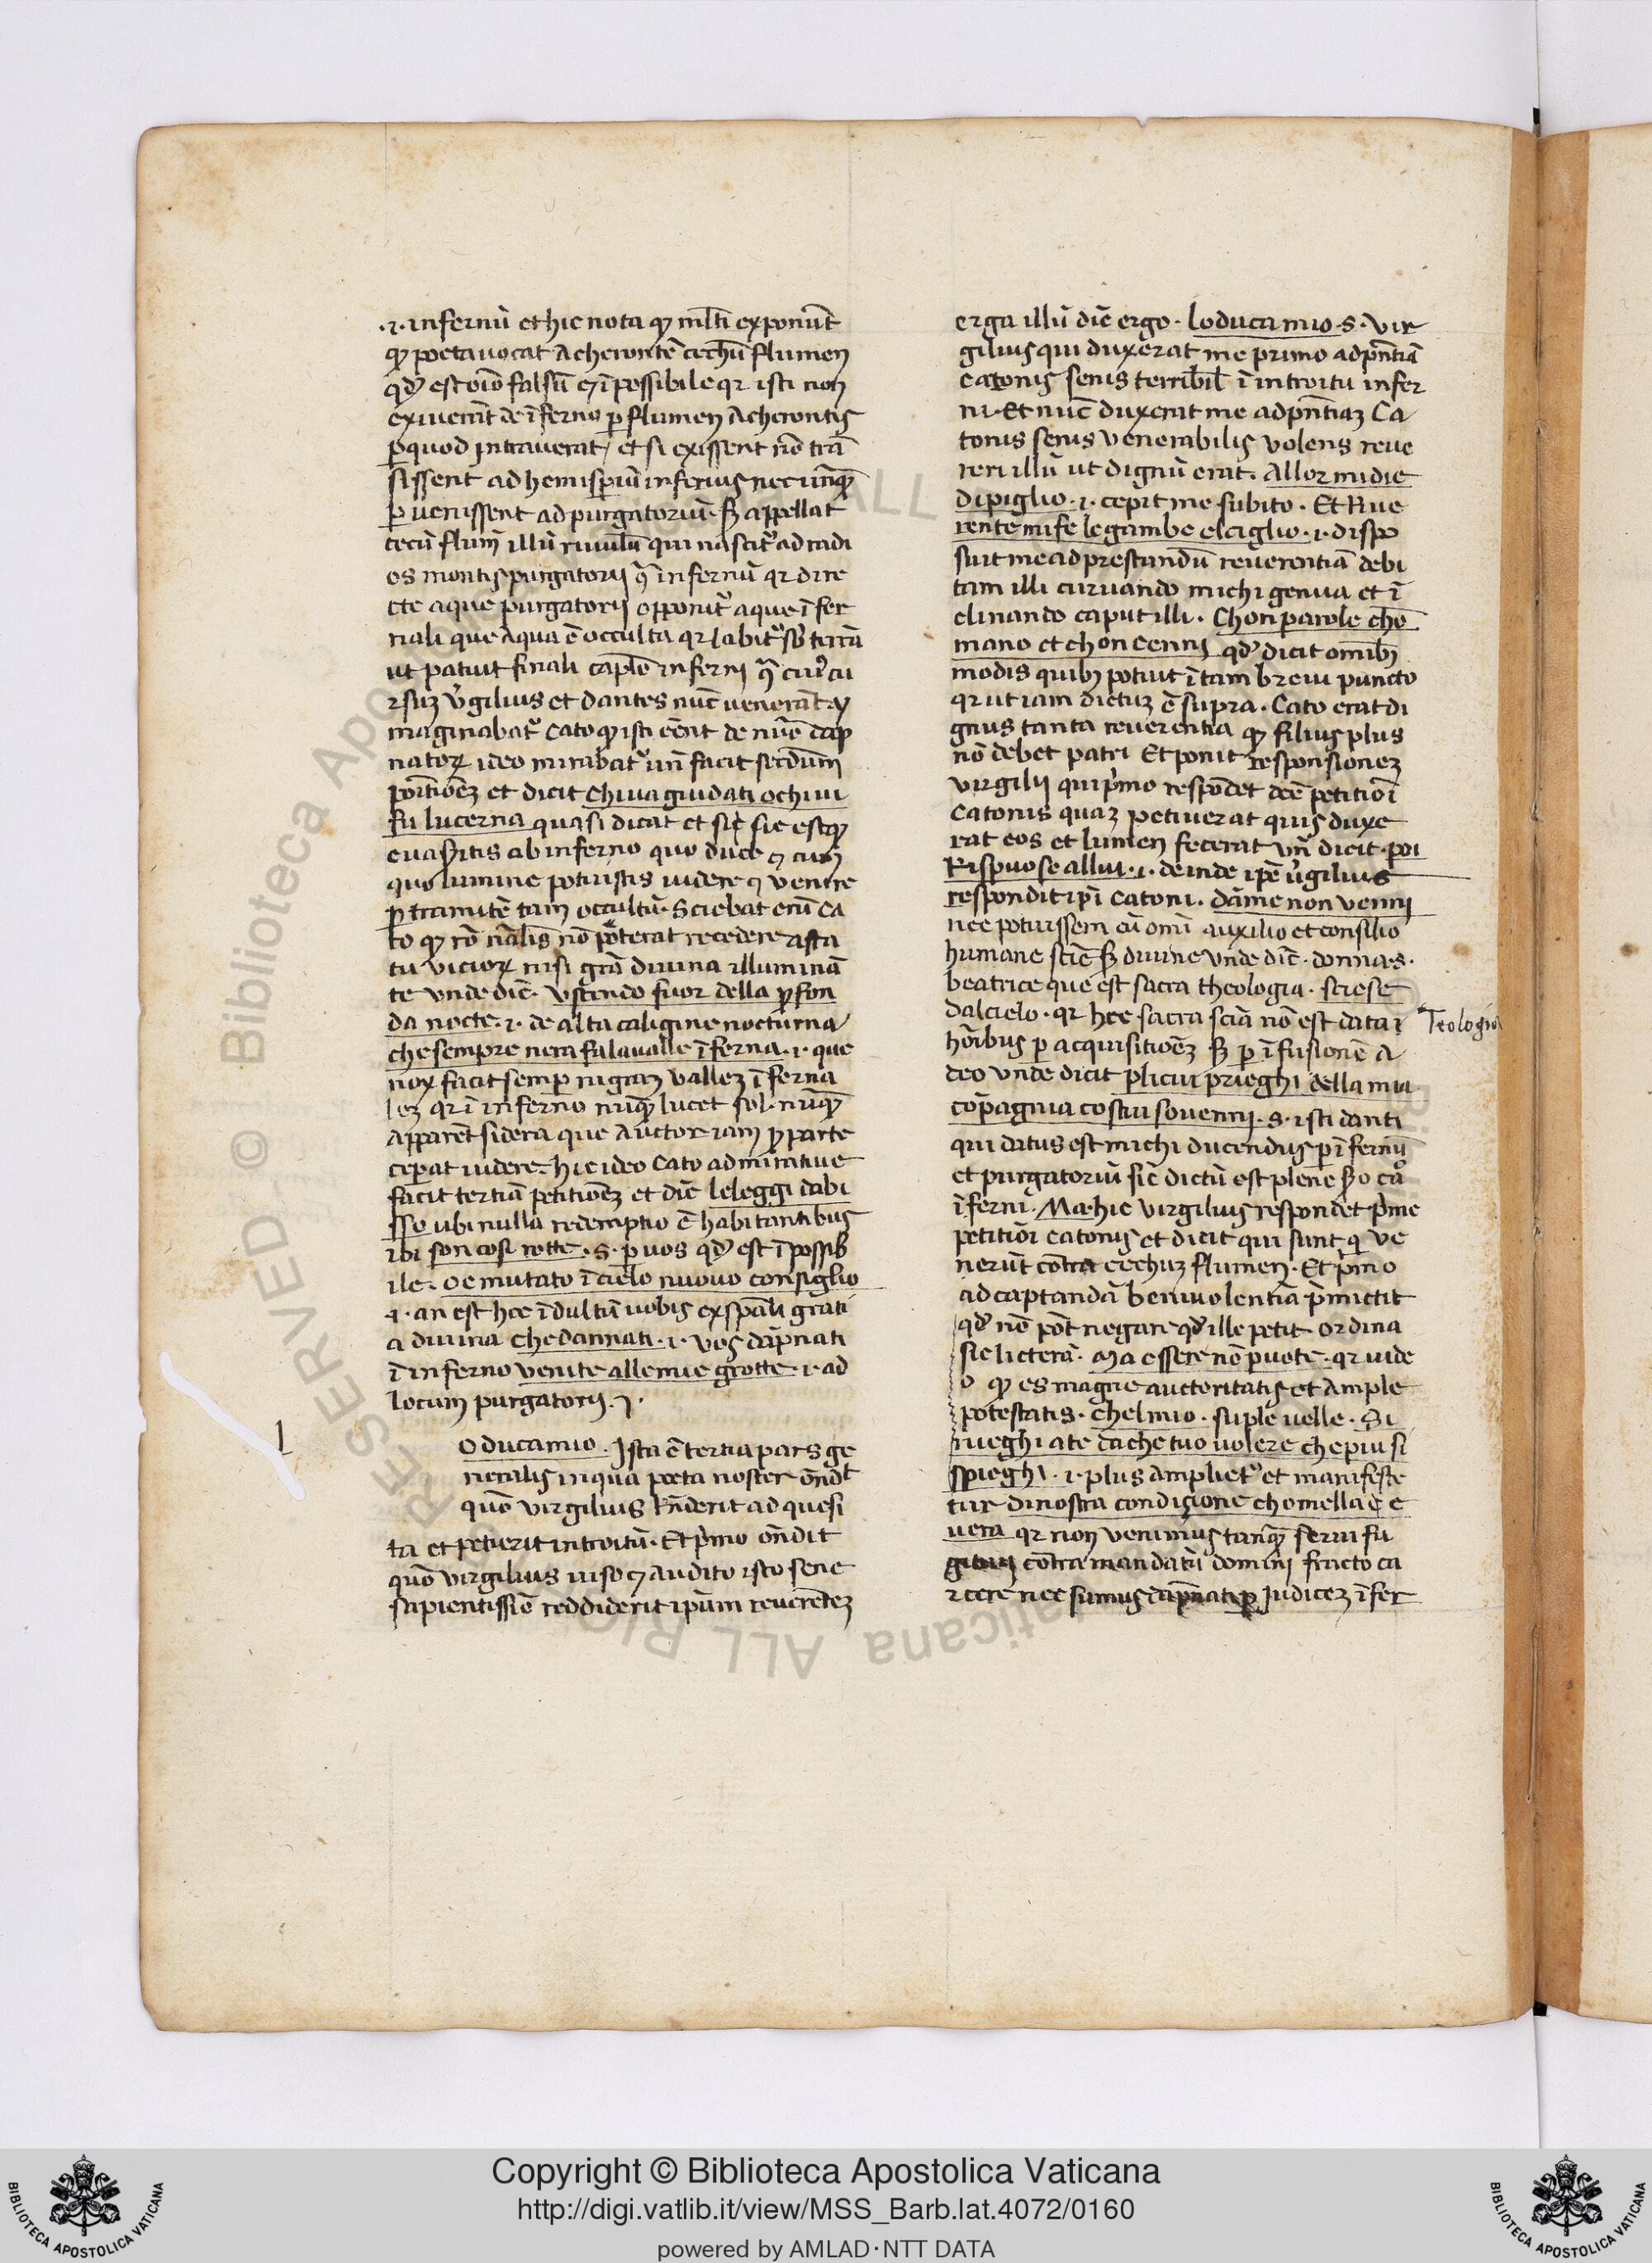 .i. infernū et hic nota qꝫ ml̄ti exponūt
qꝫ poeta uocat acherontē cechū flumen
qđ est oīo falsū ⁊ īpossibile qr isti non
exiuerāt de īferno ꝑ flumen acherontis
ꝑ quod intrauerat, et si exissent nō trā
sissent ad hemisperiū inferius nec unqꝫ
ꝑ uenissent ad purgatoriū. sꝫ appellat
cecū flum̄ illū riuulū qui nascit᷑ ad radi
os montis purgatorij
cte aque purgatorij opponit᷑ aque īfer
nali que aqua ē occulta qr labit᷑ sub terrā
ut patuit finali caplō infernj
rsuꝫ v̓gilius et dantes nūc uenerāt. y
maginabat᷑ cato qꝫ isti eēnt de nūo dāp
natoꝝ ideo mirabat᷑ un̄ facit secūdam
portiōeꝫ et dicit chiua guidati ochiui
fu lucerna quasi dicat et sic̄ sic est qꝫ
euasistis ab inferno quo duce ⁊ cum
quo lumine potuistis uidere ⁊ venire
ꝑ tramitē tam occultū. Sciebat enī ca
to qꝫ rō nālis nō poterat recedere asta
tu vicioꝝ nisi grā diuina illuminā
te vnde dic̄. vscendo fuor della ꝓfon
da nocte .i. de alta caligine nocturna
che sempre nera fa la ualle īferna .i. que
nox facit semꝑ nigram valleꝫ īferna
leꝫ qr ī inferno nūqꝫ lucet sol. nūqꝫ
apparēt sidera que auctor iam ꝓ parte
ceperat uidere. hic ideo cato admiratiue
facit tertiā petitiōeꝫ et dic̄ le leggi dabi
sso ubi nulla redemptio ē habitantibus
ibi son cosi rotte .s. ꝑ uos qđ est īpossib
ile. o e mutato ī cielo nuouo consiglio
.i. an est hec īdultū uobis ex spāli grati
a diuina che dannati .i. vos dāpnati
ī inferno venite alle mie grotte .i. ad
locum purgatorij. ⁊.
l
o duca mio. Ista ē tertia pars ge
neralis in qua poeta noster ōndit
quō virgilius rn̄derit ad quesi
ta et petierit introitū. Et p̄mo ōndit
quō virgilius uiso ⁊ audito isto sene
sapientissīo reddiderit ip̄um reuerētēꝫ
erga illū dic̄ ergo. lo duca mio .s. vir
gilius qui duxerat me primo ad pn̄tiā
catonis senis terribil̄ ī introitu infer
ni. Et nūc duxerat me ad pn̄tiaꝫ Ca
tonis senis venerabilis volens reue
reri illū ut dignū erat. allor mi die
di piglio .i. cepit me subito. Et Riue
rente mi fe le gambe el ciglio .i. dispo
suit me ad prestandū reuerentiā debi
tam illi curuando michi genua et ī
clinando caput illi. Chon parole e chō
mano et chon cennj qđ dicit omībꝫ
modis quibꝫ potuit ī tam breui puncto
qr ut iam dictuꝫ ē supra. Cato erat di
gnus tanta reuerentia qꝫ filius plus
nō debet patri Et ponit responsioneꝫ
virgilij qui p̄mo respōdet dcē petitiōi
catonis quaꝫ petiuerat quis duxe
rat eos et lumen fecerat vn̄ dicit. poi
Rispuose allui .i. deinde ip̄e v̓gilius
respondit ip̄i catoni. dāme non vennj
nec potuissem cū omī auxilio et consilio
humane sciē sꝫ diuine vnde dic̄. donna .s.
beatrice que est sacra theologia. sciese
dal cielo. qr hec sacra sciā nō est data ī
hoībus ꝑ acquisitiōeꝫ sꝫ ꝑ īfusionē a
deo vnde dicit plicui prieghi della mia
cōpagnia costui souennj .s. isti danti
qui datus est michi ducendus ꝑ īfernū
et purgatoriū sic̄ dictū est plene
īferni. Ma hic virgilius respondet p̄me
petitiōi catonis et dicit qui sunt qui ve
nerūt cōtra cechuꝫ flumen. Et p̄mo
ad captandā beniuolentiā p̄mictit
qđ nō pōt negare qđ ille petit. ordina
sic licterā. Ma essere nō puote. qr uide
o qꝫ es magne auctoritatis et ample
potestatis. chel mio. suple uelle. Si
nieghi a te da che tuo uolere che piu si
spieghi .i. plus ampliet᷑ et manifeste
tur di nostra condiçione chomella ē e
uera qr non venimus tanqꝫ serui fu
gitiui cōtra mandatū domini fracto ca
rcere nec sumus dāpnati ꝑ Judiceꝫ īfer
Teologia
Copyright © Biblioteca Apostolica Vaticana
http://digi.vatlib.it/view/MSS_Barb.lat.4072/0160
powered by AMLAD·NTT DATA
BIBLIOTECA APOSTOLICA VATICANA
BIBLIOTECA APOSTOLICA VATICANA